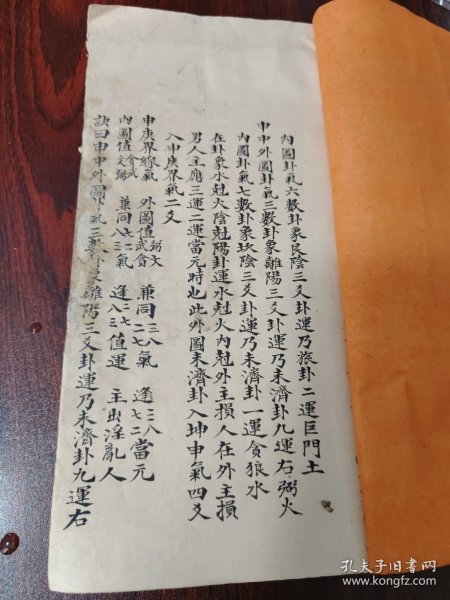 內圖卦氣六數卦象艮陰三爻卦運乃旅卦二運巨門土
申中外圖卦氣三數卦象離陽三爻卦運乃未濟卦九運右弼火
內圖卦氣七數卦象坎陰三爻卦運乃未濟卦一運貪狼水
在卦象水尅火陰尅陽卦運水尅火內尅外主損人在外主損
男人主應三運二運當元時也此外圖未濟卦入坤申氣四爻
入申庚界氣二爻
申庚界線氣 外圖值武貪弼文 兼同二七三八氣 逢七二三八當元
內圖值文弼貪武 兼同八三七二氣 逢八三二七值運 主出淫亂人
訣曰申中外圖卦氣三數卦象離陽三爻卦運乃未濟卦九運右
孔夫子旧书网
www.kongfz.com